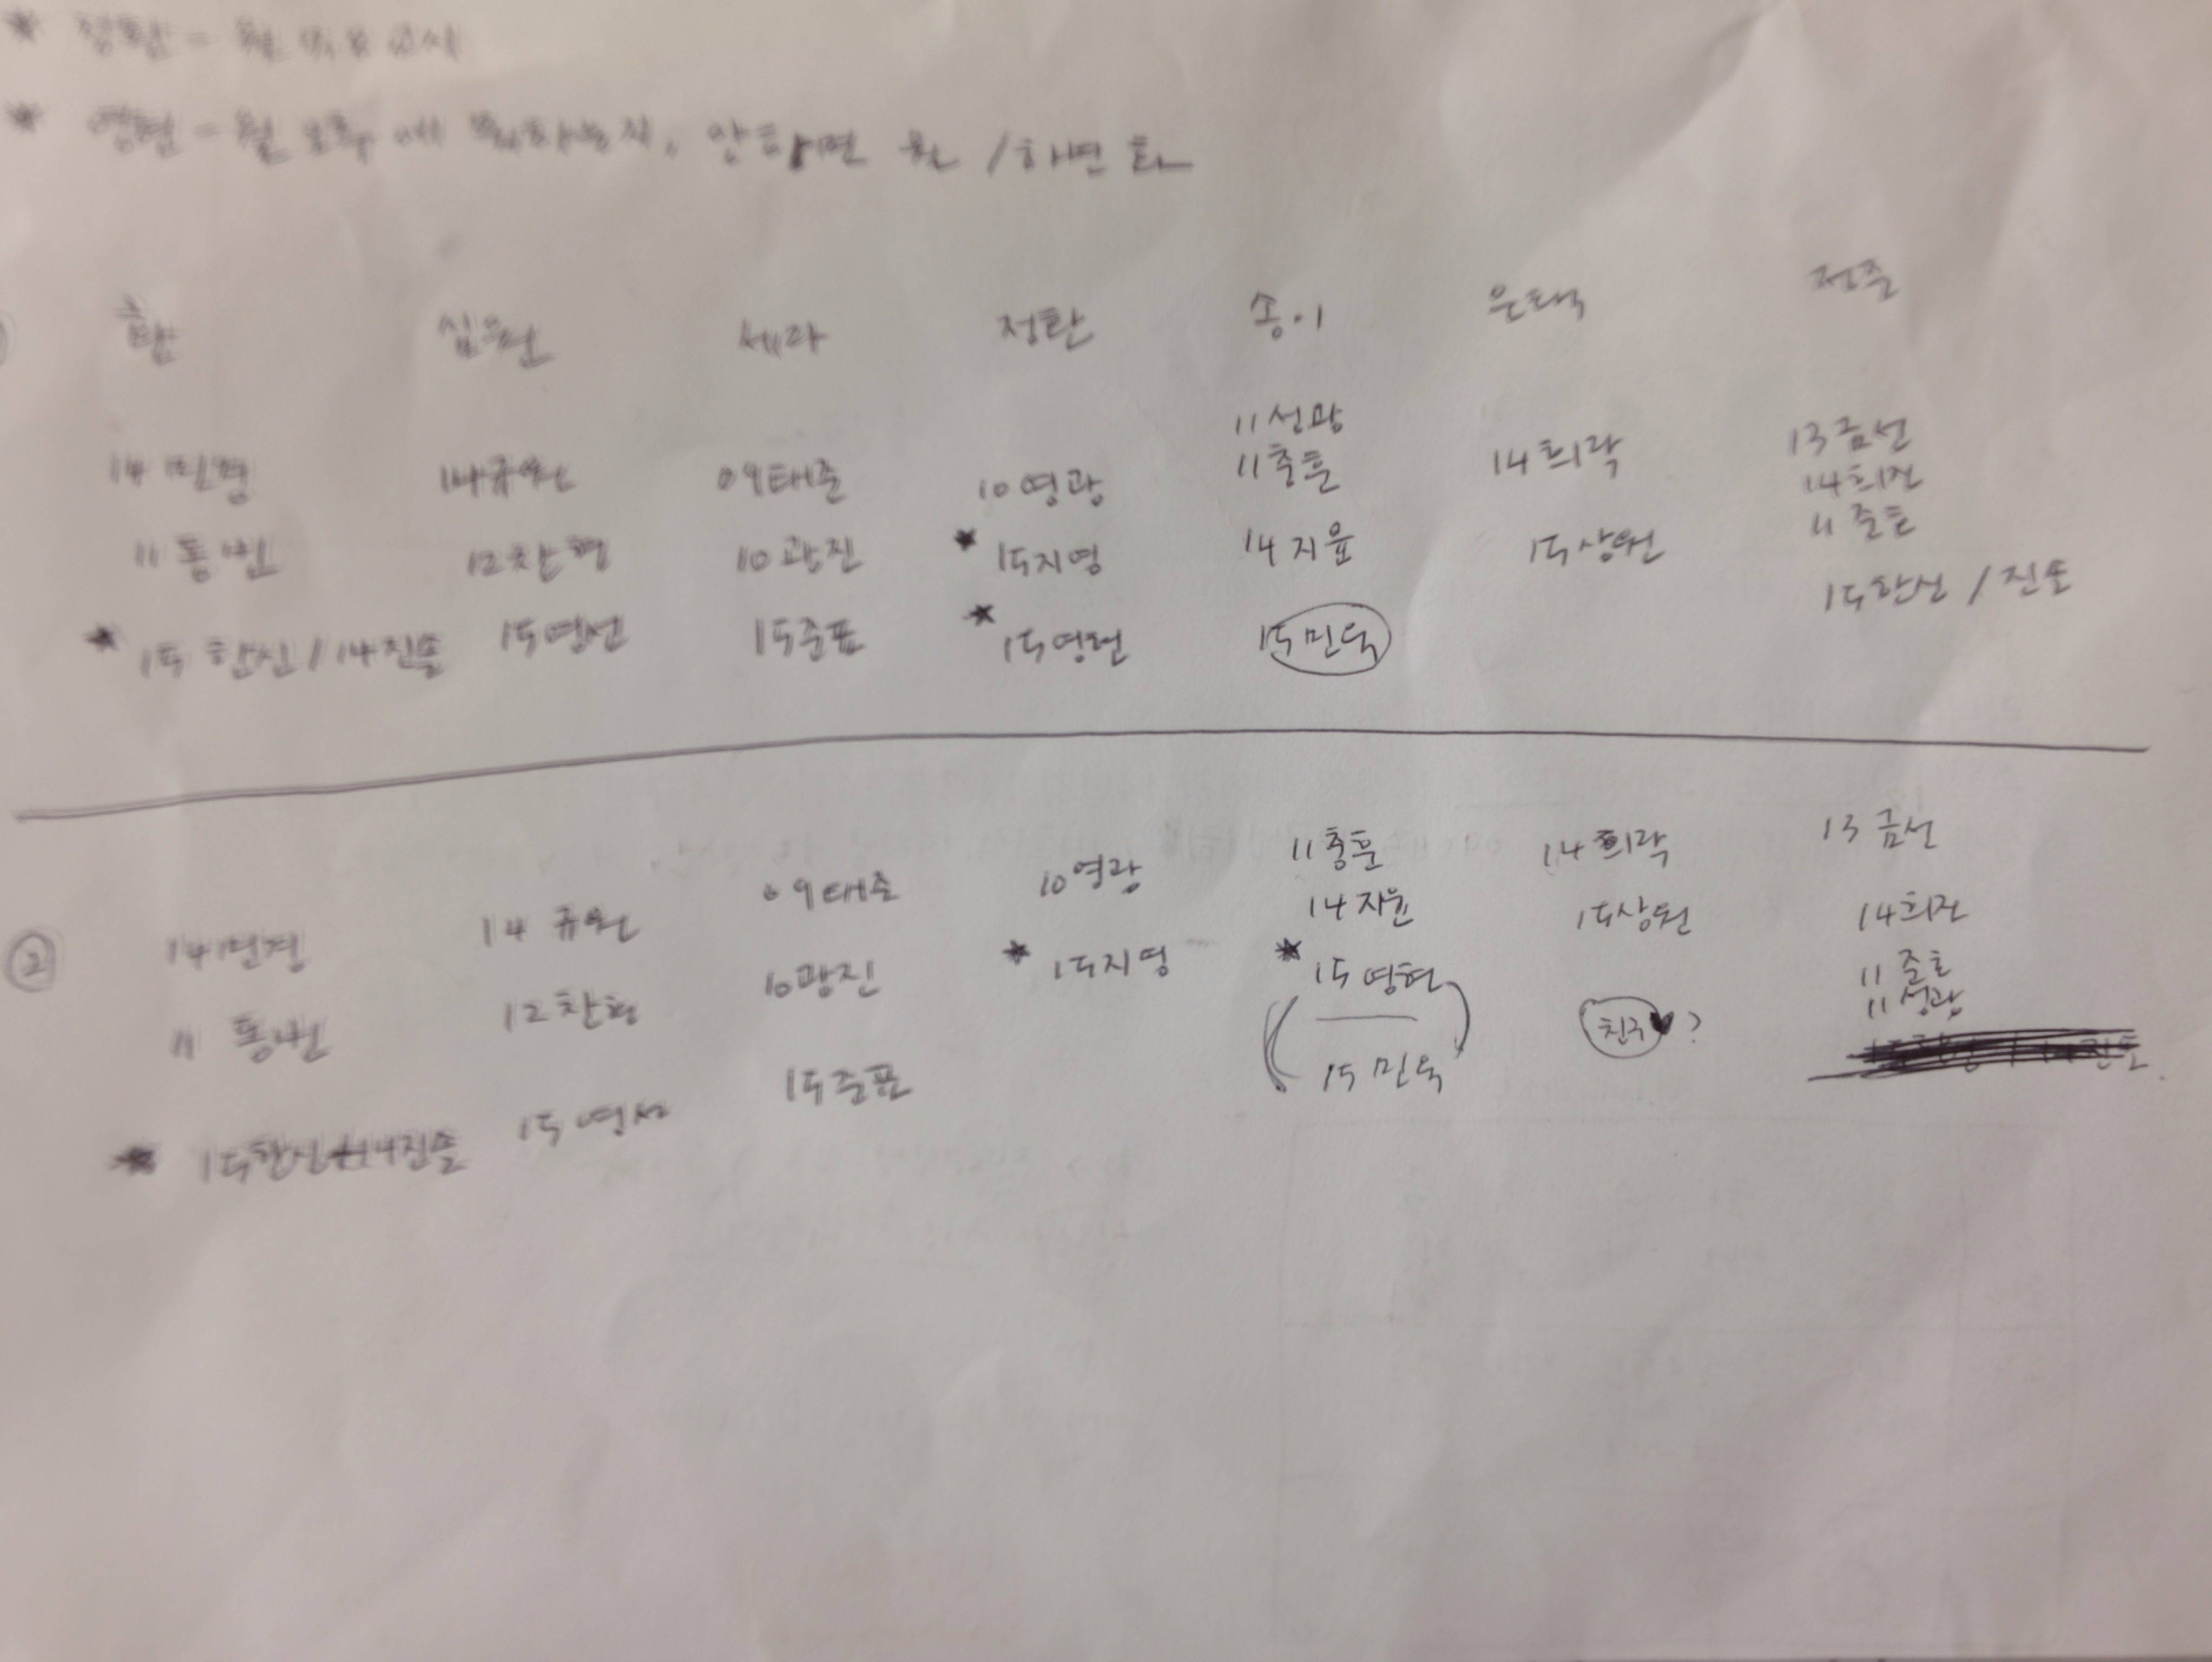 ★ 정환 =
★ 영현 = 월 오후에 하는지, 안하면 월 / 하면 화
함 심원 세라 정탄 송이 은택 정주
11 선광
14 민경 14 규원 09 태준 10 영광 11 충훈 14 희락 13 금선
14 희진
11 동번 12 찬형 10 광진 ★ 15 지영 14 지윤 15 상원 11 준호
★ 15 한신 / 14 진솔 15 영선 15 준표 ★ 15 영현 15 민욱 15 한신 / 진솔
②
14 민경 14 규원 09 태준 10 영광 11 충훈 14 희락 13 금선
11 동번 12 찬형 10 광진 ★ 15 지영 14 지윤 15 상원 14 희진
★ 15 영현 친구♥? 11 준호
11 성광
★ 15 한신 14 진솔 15 영서 15 준표 15 민욱